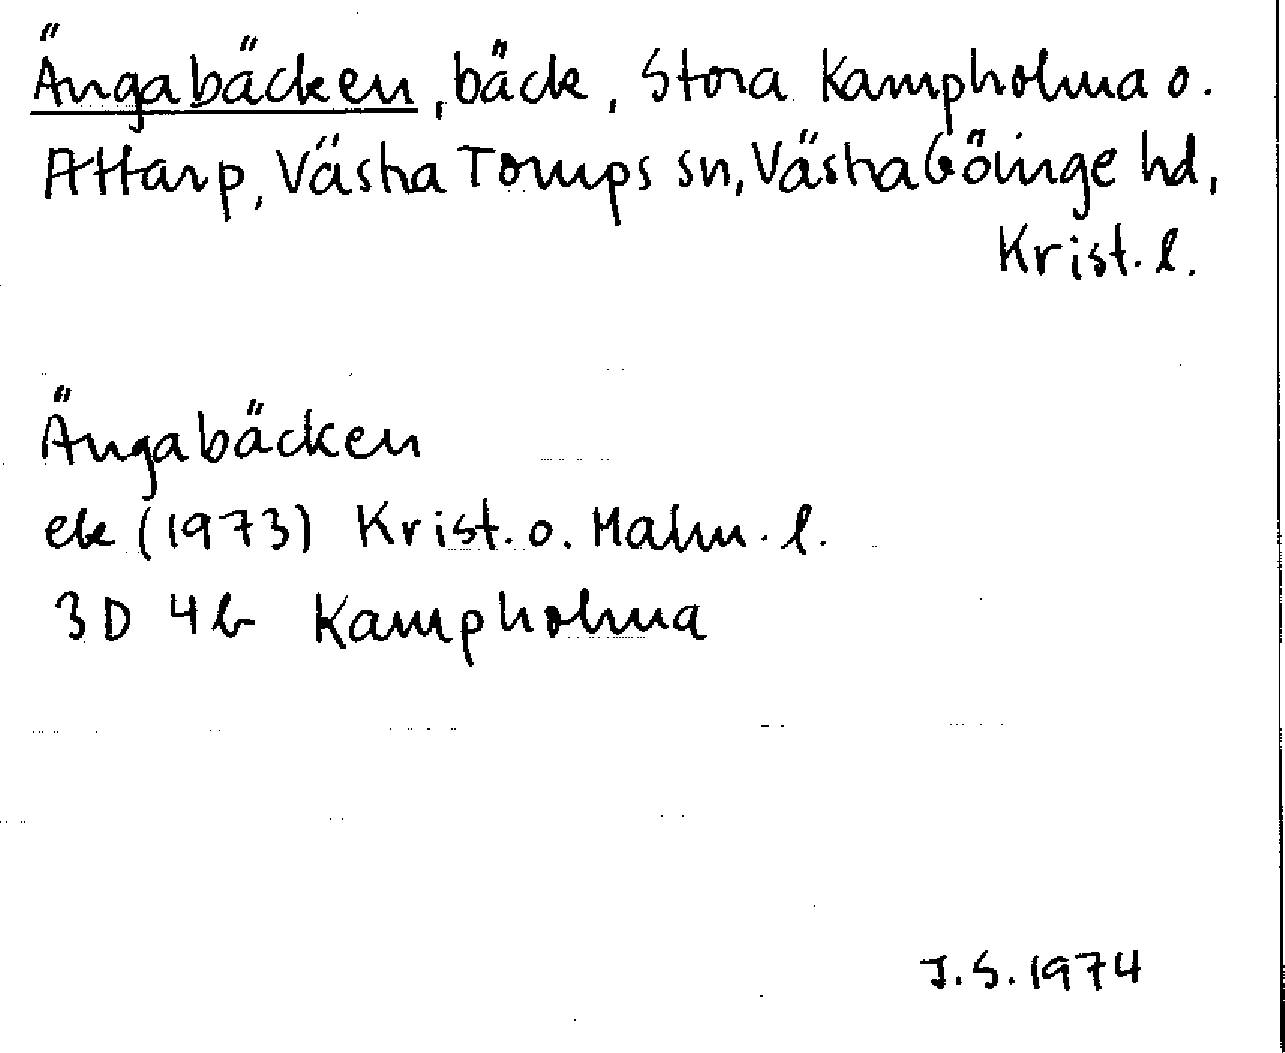 Ängabäcken, bäck, Stora Kampholma o.
Attarp, Västra Torups sn, Västra Göinge hd,
Krist. l.
Ängabäcken
ek (1973) Krist. o. Malm. l.
3D 4b Kampholma
J.S. 1974